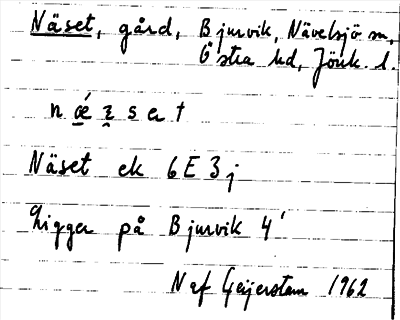 Näset, gård, Bjurvik, Nävelsjö sn,
Östra hd, Jönk. l.
n ǽ z s e t
Näset ek 6E3j
Ligger på Bjurvik 4'
N af Geijerstam 1962